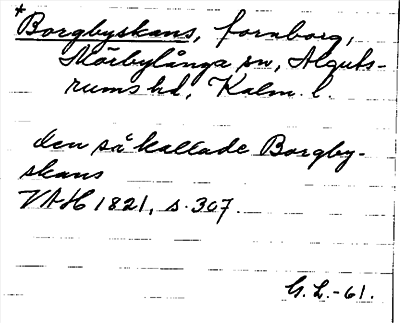 *
Borgbyskans, fornborg,
Mörbylånga sn, Alguts-
rums hd, Kalm. l.
den så kallade Borgby-
skans
VAH 1821, s. 307.
G. L. -61.